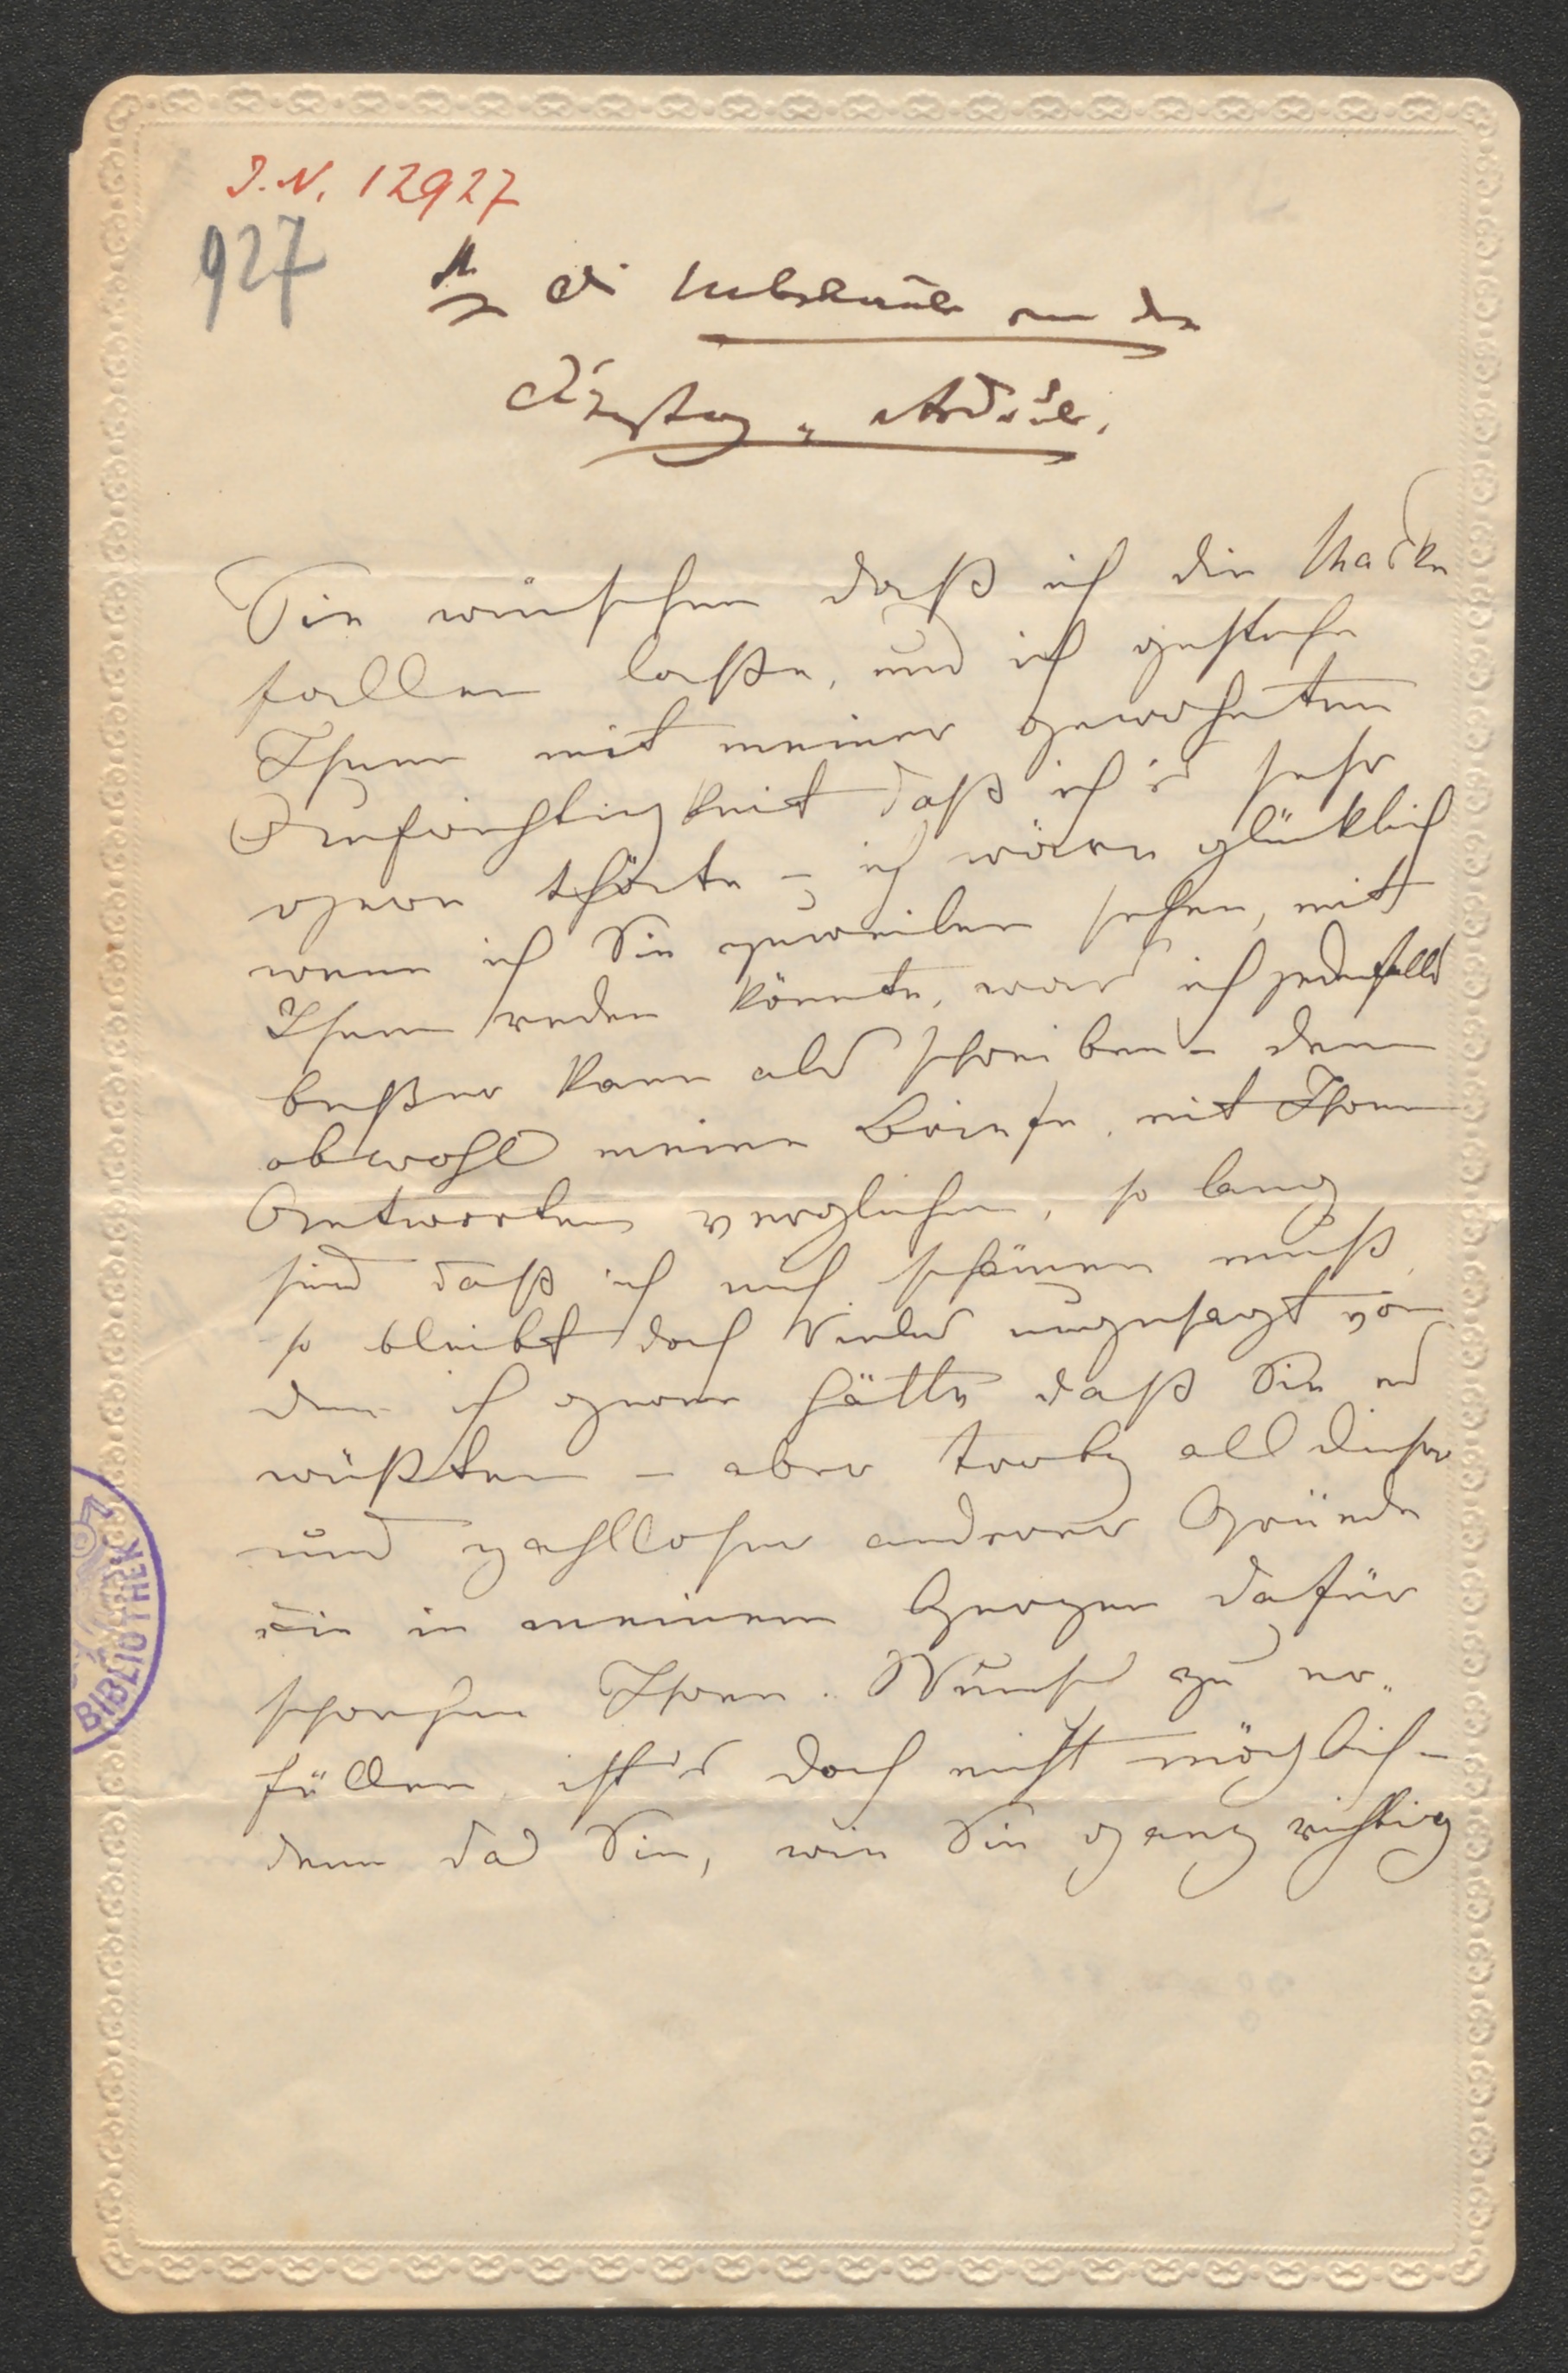 J. N. 12927
927
die Unbekannte von der
Sie wünschen daß ich die Maske
fallen laße, und ich gestehe
Ihnen mit meiner gewohnten
Aufrichtigkeit daß ich's sehr
gern thäte – ich wäre glücklich
wenn ich Sie zuweilen sehen, mit
Ihnen reden könnte, was ich jedenfalls
beßer kann als schreiben – denn
obwohl meine Briefe, mit Ihren
Antworten verglichen, so lang
sind daß ich mich schämen muß,
so bleibt doch Vieles ungesagt von
dem ich gerne hätte daß Sie es
wüßten – aber trotz all dieser
und zahlloser anderer Gründe
die in meinem Herzen dafür
sprechen Ihren Wunsch zu er„
füllen, ist's doch nicht möglich –
denn das Sie, wie Sie ganz richtig
BIBLIOTHEK